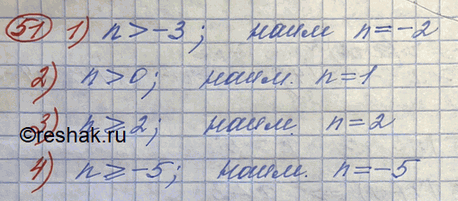 51 1) n > -3; наим n = -2
2) n > 0; наим. n = 1
3) n ≥ 2; наим. n = 2
©reshak.ru
4) n ≥ -5; наим. n = -5